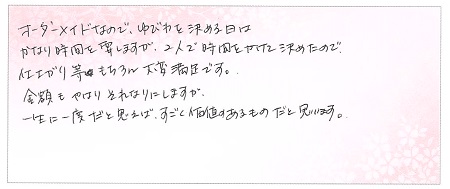 オーダーメイドなので、ゆびわを決める日は
かなり時間を要しますが、2人で時間をかけて決めたので、
仕上がり等もちろん大変満足です。
金額もやはりそれなりにしますが、
一生に一度だと思えば、すごく価値があるものだと思います。